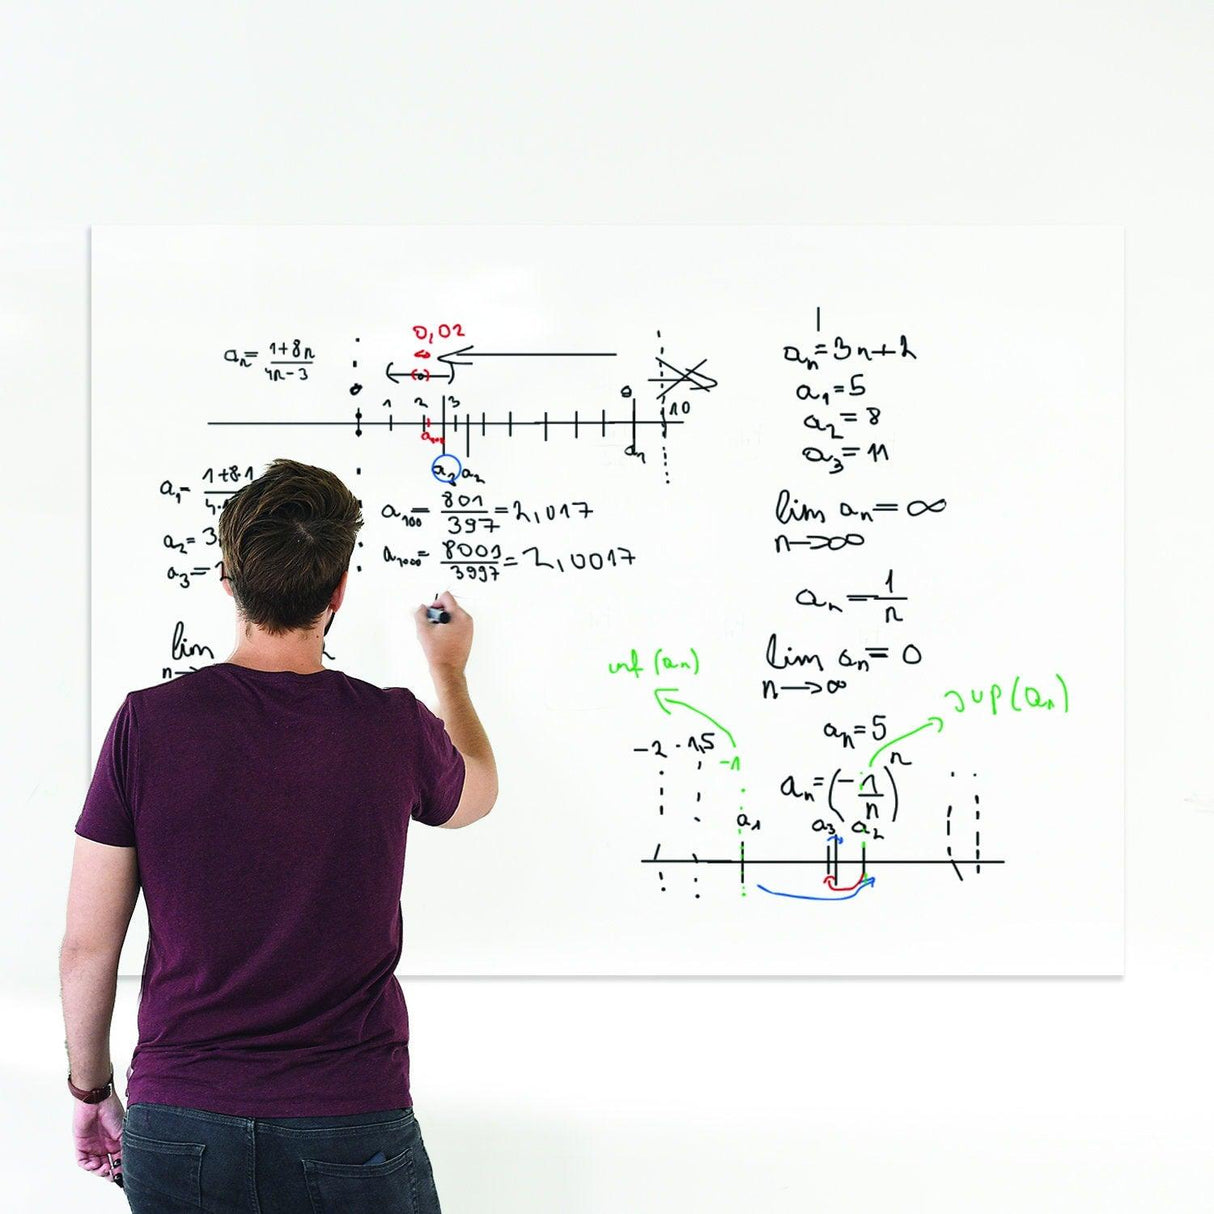 0,02
aₙ = (1+8n)/(4n-3)
1 2 3 10
aₙ₊₁
a₃ a₂ a₁
a₁ = 1+8·1
a₂ = 3,
a₃ =
a₁₀₀ = 801/397 = 2,017
a₁₀₀₀ = 8001/3997 = 2,0017
lim
n→
aₙ = 3n+2
a₁ = 5
a₂ = 8
a₃ = 11
lim aₙ = ∞
n→∞
aₙ = 1/n
lim aₙ = 0
n→∞
inf (aₙ)
sup (aₙ)
aₙ = 5
-2 -1,5 -1
aₙ = (-1/n)ⁿ
a₁ a₃ a₂